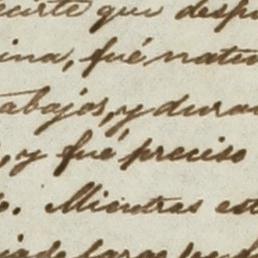 decirte que desp
ina, fué natu
abajos, y dura
, y fué preciso
. Mientras est